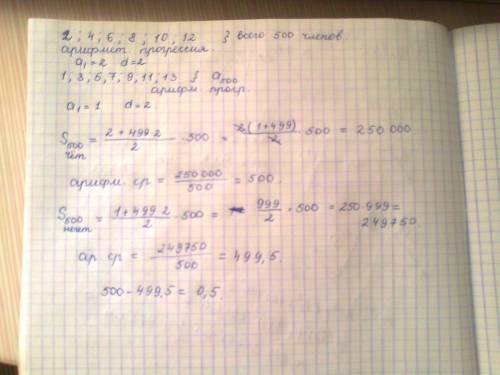 2 ; 4 ; 6 ; 8 ; 10 ; 12 } всего 500 членов.
арифмет. прогрессия.
a₁=2 d=2
1; 3; 5; 7; 9; 11; 13 } a₅₀₀
арифм прогр.
a₁=1 d=2.
S₅₀₀ чёт = (2+499·2)/2 · 500 = 2(1+499)/2 · 500 = 250 000
арифм. ср = 250 000/500 = 500.
S₅₀₀ нечёт = (1+499·2)/2 · 500 = 999/2 · 500 = 250·999 =
249750.
ар. ср = 249750/500 = 499,5.
500-499,5 = 0,5.